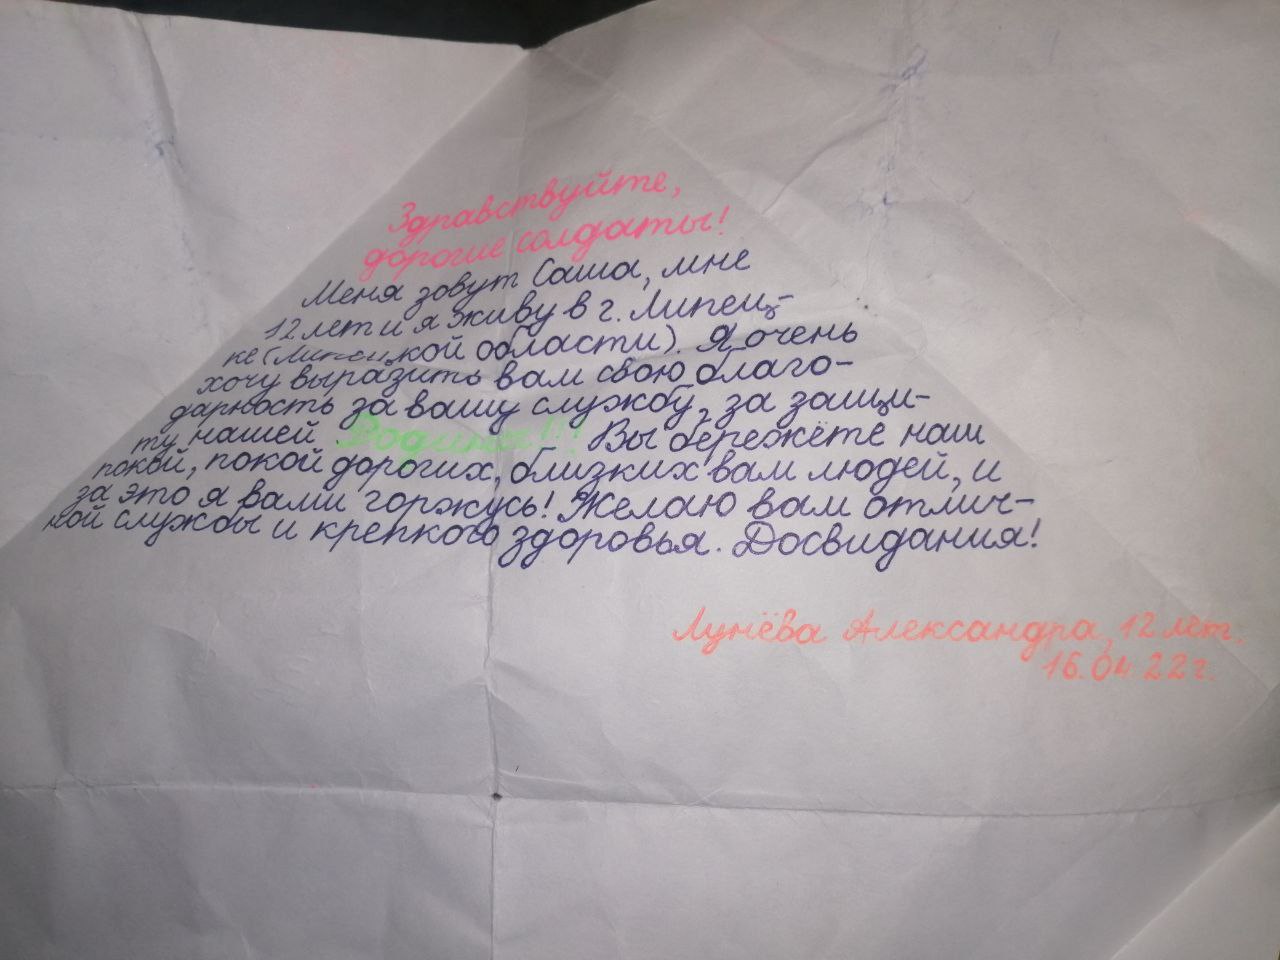 Здравствуйте,
дорогие солдаты!
Меня зовут Саша, мне
12 лет и я живу в г. Липец-
ке (Липецкой области). Я очень
хочу выразить вам свою благо-
дарность за вашу службу, за защи-
ту нашей Родины!!! Вы бережёте наш
покой, покой дорогих, близких вам людей, и
за это я вами горжусь! Желаю вам отлич-
ной службы и крепкого здоровья. Досвидания!
Лунёва Александра, 12 лет.
16.04.22г.